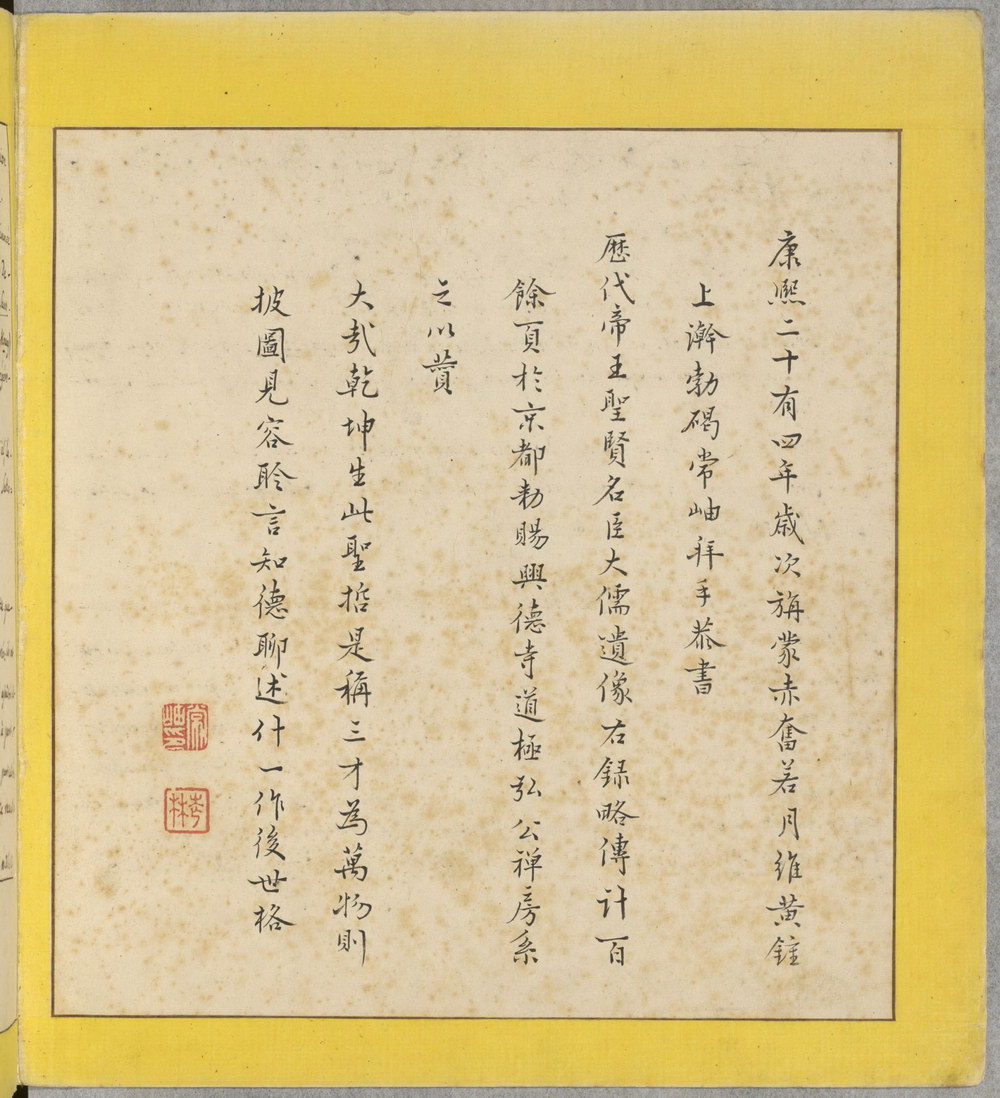 康熙二十有四年歲次旃蒙赤奮若月維黃鍾
上澣勃碣常岫拜手恭書
歷代帝王聖賢名臣大儒遺像右録略傳計百
餘頁於京都勅賜興德寺道極弘公禅房系
之以賛
大哉乾坤生此聖哲是稱三才為萬物則
披圖見容聆言知德聊述什一作後世格
常岫之印